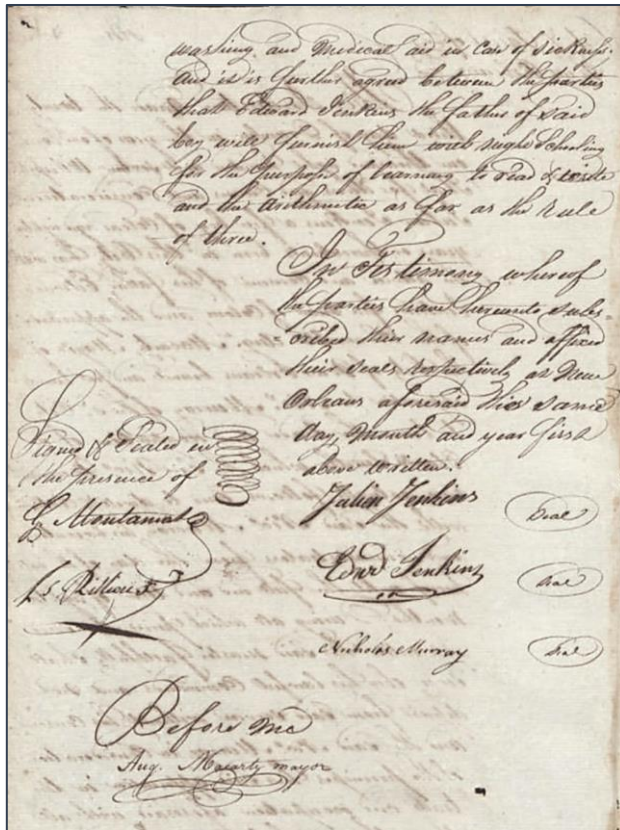 washing and Medical aid in case of sickness.
And it is further agreed between the parties
that Edward Jenkins the father of said
boy will furnish him with night Schooling
for the purpose of learning to read & write
and the arithmetic as far as the rule
of three.
In Testimony whereof
the parties have hereunto subs-
cribed their names and affixed
their seals respectively at New
Orleans aforesaid this same
day, month and year first
above written.
Signed & Sealed in
the presence of
Montamat
Julien Jenkins
Seal
Edwd Jenkins
Seal
Nicholas Murray
Seal
Before me
Aug. Macarty mayor